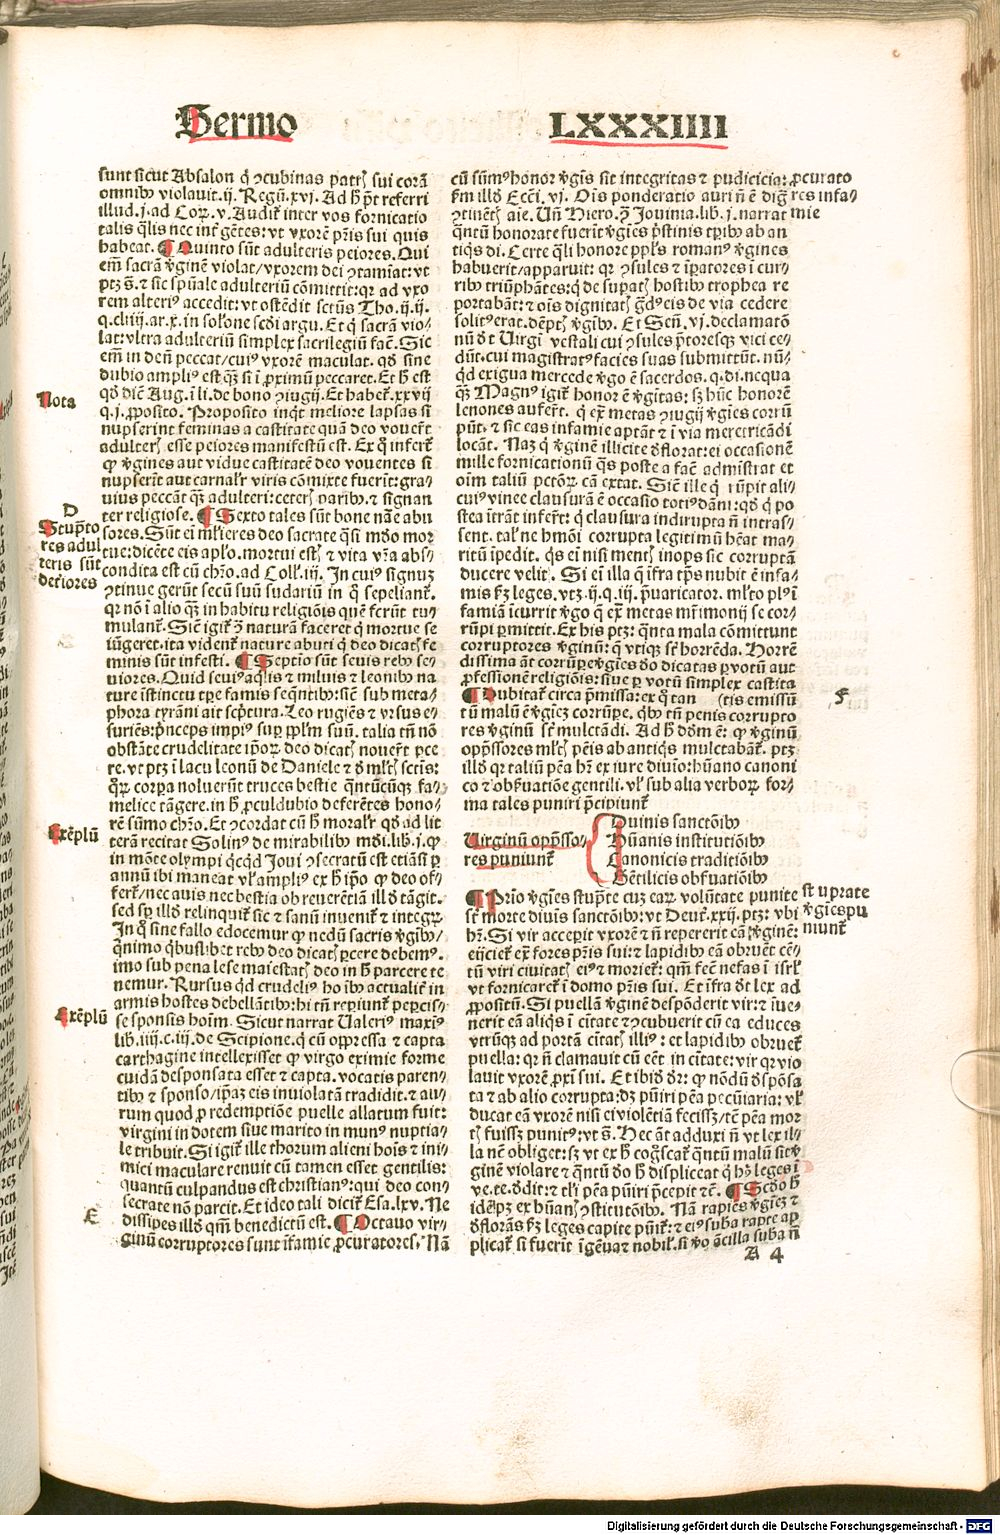 Sermo LXXXIIII
sunt sicut Absalon q̄ ꝯcubinas patrꝭ sui corā
omnibꝰ violauit. ij. Regū. xvj. Ad h̄ pt̄ referri
illud. j. ad Coꝝ. v. Audit̄ inter vos fornicatio
talis q̄lis nec int̄ gētes: vt vxorē pr̄is sui quis
habeat. ¶ Quinto sūt adulteris peiores. Qui
em̄ sacrā v̄ginē violat/ vxorem dei ꝯtamīat: vt
ptꝫ s̄. ⁊ sic sp̄uale adulteriū cōmittit: qr ad vxo
rem alteriꝰ accedit: vt ostēdit sctūs Tho. ij. ij.
q. cliiij. ar. x. in solōne sc̄di argu. Et q̄ sacrā vio/
lat: vltra adulteriū simplex sacrilegiū fac̄. Sic
em̄ in deū peccat/ cuiꝰ vxorē maculat. qd̄ sine
dubio ampliꝰ est qꝫ si ī ꝓximū peccaret. Et h̄ est
qd̄ dic̄ Aug. ī li. de bono ꝯiugij. Et habet̄. xxvij
q. j. ꝓposito. Proposito inqt̄ meliore lapsas si
nupserint feminas a castitate quā deo vouer̄t
adulterꝭ esse peiores manifestū est. Ex q̄ infert̄
ꝙ v̄gines aut vidue castitatē deo vouentes si
nupserīt aut carnalr̄ viris cōmixte fuerīt: gra/
uius peccāt qꝫ adulteri: ceterꝭ paribꝰ. ⁊ signan
ter religiose. ¶ Sexto tales sūt bone nāe abu
sores. Sūt ei ml̄ieres deo sacrate q̄si mō mor
tue: dicēte eis apl̄o. mortui estꝭ ⁊ vita vr̄a abs/
condita est cū chr̄o. ad Coll. iij. In cuiꝰ signuꝫ
ꝯtinue gerūt secū suū sudariū in q̄ sepeliant̄.
qr nō ī alio qꝫ in habitu religiōis quē ferūt tu/
mulant̄. Sic̄ igit̄ ꝯ̄ naturā faceret q̄ mortue se
iūgeret. ita vident̄ nature abuti q̄ deo dicatꝭ fe
minis sūt infesti. ¶ Septīo sūt seuis rebꝰ se/
uiores. Quid seuiꝰ aq̄lis ⁊ miluis ⁊ leonibꝰ na
ture īstinctu tpr̄e famis seq̄ntibꝰ: sic̄ sub meta/
phora tyrāni ait scp̄tura. Leo rugiēs ⁊ vrsus e/
suriēs: p̄nceps impiꝰ suꝑ ppl̄m suū. talia tn̄ nō
obstāte crudelitate ip̄oꝝ deo dicatꝭ nouer̄t ꝑce
re. vt ptꝫ ī lacu leonū de Daniele ⁊ d̄ ml̄tꝭ sctīs:
q̄ꝝ corꝑa noluer̄t truces bestie q̄ntūcūqꝫ fa/
melice tāgere. in h̄ ꝓculdubio deferētes hono/
rē sūmo chr̄o. Et ꝯcordat cū h̄ moralr̄ qd̄ ad lit
terā recitat Solinꝰ de mirabilibꝰ mūdi. lib. j. ꝙ
in mōte olympi q̄cqd Joui ꝯsecratū est etiāsi ꝑ
annū ibi maneat vl̄ ampliꝰ ex h̄ ip̄o ꝙ deo of/
fert̄/ nec auis nec bestia ob reuerētiā ill̄d tāgit.
sed sꝑ ill̄d relinquit̄ sic ⁊ sanū inuenit̄ ⁊ integꝝ
In q̄ sine fallo edocemur ꝙ nedū sacris v̄gībꝰ/
q̄nimo q̄buslibet rebꝰ deo dicatꝭ ꝑcere debemꝰ.
imo sub pena lese maiestatꝭ deo in h̄ parcere te
nemur. Rursus qd̄ crudeliꝰ hoībꝰ actualit̄ in
armis hostes debellātibꝰ: hi tn̄ reꝑiunt̄ peꝑcis/
se sponsis hoīm. Sicut narrat Ualeriꝰ maxīꝰ
lib. iiij. c. iij. de Scipione. q̄ cū oppressa ⁊ capta
carthagine intellexisset ꝙ virgo eximie forme
cuidā desponsata esset ⁊ capta. vocatis paren/
tibꝰ ⁊ sponso/ ip̄aꝫ eis inuiolatā tradidit. ⁊ au/
rum quod ꝓ redemptiōe puelle allatum fuit:
virgini in dotem siue marito in munꝰ nuptia/
le tribuit. Si igit̄ ille thorum alieni hois ⁊ ini/
mici maculare renuit cū tamen esset gentilis:
quantū culpandus est christianꝰ: qui deo con/
secrate nō parcit. Et ideo tali dicit̄ Esa. lxv. Ne
dissipes ill̄d qm̄ benedictū est. ¶ Octauo vir/
ginū corruptores sunt īfamie ꝓcuratores. Nā
Nota
D
Stup̄to
res adul
teris sūt
deteriores
Exēplū
Exēplū
E
cū sūmꝰ honor v̄gīs sit integritas ⁊ pudicicia:
fm ill̄d Ecc̄i. vj. Oīs ponderatio auri nō ē dig̅
ꝯtinētꝭ aīe. Un̄ Hiero. ꝯ̄ Jouiniā. lib. j. narrat
q̄ntū honorate fuerīt v̄gīes p̄stinis tpībꝰ ab an
tiqs di. Certe q̄li honore ppl̄s romanꝰ v̄gines
habuerit/ apparuit: qr ꝯsules ⁊ īꝑatores ī cur/
ribꝰ triūphātes: q̄ de suꝑatꝭ hostibꝰ trophea re
portabāt: ⁊ oīs dignitatꝭ g̅dꝰ eis de via cedere
solitꝰ erat. dēptꝭ v̄gībꝰ. Et Sen̄. vj. declamatō
nū dt̄ Uirgī vestali cui ꝯsules p̄toresqꝫ vici ce/
dūt. cui magistratꝰ facies suas submittūt. nū/
qd exigua mercede v̄go ē sacerdos. q. di. nequa
qꝫ Magnꝰ igit̄ honor ē v̄gītas: sꝫ hūc honorē
lenones aufer̄t. q̄ ex̄ metas ꝯiugij v̄gīes corrū
pūt. ⁊ sic eas infamie aptāt ⁊ ī via meretricādi
locāt. Naꝫ q̄ v̄ginē illicite d̄florat: ei occasionē
mille fornicationū q̄s poste a fac̄ admīstrat et
oīm taliū pctōꝝ cā extat. Sic̄ ille q̄ rūpit ali/
cuiꝰ vinee clausurā ē occasio totiꝰ dāni: qd̄ q̄ po
stea ītrāt infer̄t: q̄ clausura indirupta nō intras/
sent. tal̄ ne hmōi corrupta legitimū h̄eat ma/
ritū īpedit. qs ei nisi mentꝭ inops sic corruptā
ducere velit. Si ei illa q̄ īfra tꝑs nubit ē infa/
mis fꝫ leges. vtꝫ. ij. q. iij. p̄uaricator. ml̄to plꝰ ī
famiā īcurrit v̄go q̄ ex̄ metas mr̄imonij se cor/
rūpi ꝑmittit. Ex his ptꝫ: q̄nta mala cōmittunt
corruptores v̄ginū: q̄ vtiqꝫ st̄ horrēda. Horrē
dissima āt corrūꝑe v̄gīes dō dicatas ꝑ votū aut
ꝓfessionē religiōis: siue ꝑ votū simplex castita
¶ Dubitat̄ circa p̄missa: ex q̄ tan (tis emissū
tū malū ē v̄gīeꝫ corrūꝑe. q̄bꝰ tn̄ penis corrupto
res v̄ginū st̄ mulctādi. Ad h̄ dōm ē: ꝙ v̄ginū
opp̄ssores ml̄tꝭ pēis ab antiqs mulctabāt̄. ptꝫ
ill̄d qr taliū pēa hr̄ ex iure diuīo: hūano canoni
co ⁊ obẜuatiōe gentili. vl̄ sub alia verboꝝ for/
ma tales puniri p̄cipiunt̄
Uirginū opp̄sso/
res puniunt̄
Diuinis sanctōībꝰ
Hūanis institutiōībꝰ
Canonicis traditiōībꝰ
Gētilicis obẜuatiōībꝰ
¶ Prīo v̄gīes stup̄te cuꝫ eaꝝ volūtate punite
st̄ morte diuīs sanctōībꝰ: vt Deut̄. xxij. ptꝫ: vbi
hr̄. Si vir acceꝑit vxorē ⁊ nō reꝑerit cā v̄ginē:
eijciet̄ ex̄ fores pr̄is sui: ⁊ lapidibꝰ eā obruēt cē/
tū viri ciuitatꝭ eiꝰ ⁊ moriet̄: qm̄ fec̄ nefas ī isrl̄
vt fornicaret̄ ī domo pr̄is sui. Et īfra dt̄ lex ad
ꝓpositū. Si puellā v̄ginē despōderit vir: ⁊ īue/
nerit eā aliqs ī cītate ⁊ ꝯcubuerit cū ea educes
vtrūqꝫ ad portā cītatꝭ illiꝰ: et lapidibꝰ obruet̄
puella: qr nō clamauit cū eēt in cītate: vir qr vio
lauit vxorē ꝓxī sui. Et ibid̄ dr̄: ꝙ nōdū d̄spōsa
ta ⁊ ab alio corrupta: dꝫ pūiri pēa pecūiaria: vl̄
ducat eam vxorē nisi ei violētiā fecissꝫ/ tc̄ pēa mor
tꝭ fuissꝫ punitꝰ: vt s̄. Hec āt adduxi nō vt lex il/
la nē obliget: sꝫ vt ex h̄ cog̅scat̄ q̄ntū malū sit v̄
ginē violare ⁊ q̄ntū dō h̄ displiceat q̄ hꝫ leges ī
ve. te. d̄dit: ⁊ tl̄i pēa pūiri p̄cepit ⁊c̄. ¶ Sc̄do h̄
idē ptꝫ ex hūanꝭ ꝯstitutōībꝰ. Nā rapiēs v̄gīeꝫ ⁊
d̄florās fꝫ leges capite pūit̄: ⁊ eiꝰ suba rapte ap
plicat̄ si fuerit īgēua ⁊ nobil. si v̄o ācilla suba nō
ꝓcurato
res infa/
mie
F
stuprate
v̄gīes pu
niunt̄
A 4
Digitalisierung gefördert durch die Deutsche Forschungsgemeinschaft - DFG